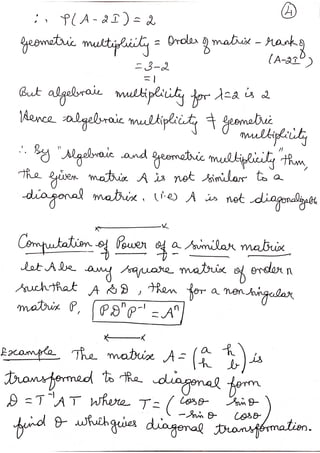 4
∴ ρ(A - 2I) = 2
geometric multiplicity = Order of matrix - Rank of (A-2I)
= 3-2
= 1
But algebraic multiplicity for λ=2 is 2
Hence algebraic multiplicity ≠ geometric multiplicity
∴ By "Algebraic and geometric multiplicity" thm,
the given matrix A is not similar to a
diagonal matrix. (i.e) A is not diagonalizable
Computation of Power of a similar matrix
let A be any square matrix of order n
such that A ≅ D, then for a non singular
matrix P, PDⁿP⁻¹ = Aⁿ
Example The matrix A = (a h
h b) is
transformed to the diagonal form
D = T⁻¹AT where T = (cosθ sinθ
-sinθ cosθ)
find θ which gives diagonal transformation.